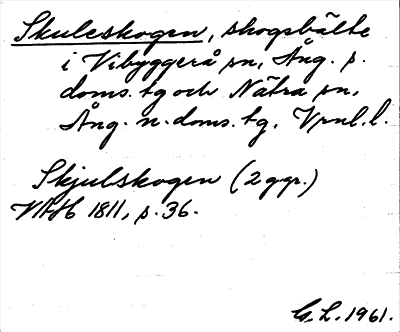 Skuleskogen, skogsbälte
i Vibyggerå sn, Ång. s.
doms. tg och Nätra sn,
Ång. n. doms. tg, Vrnl. l.
Skjulskogen (2 ggr.)
1811, s. 36.
G. L. 1961.